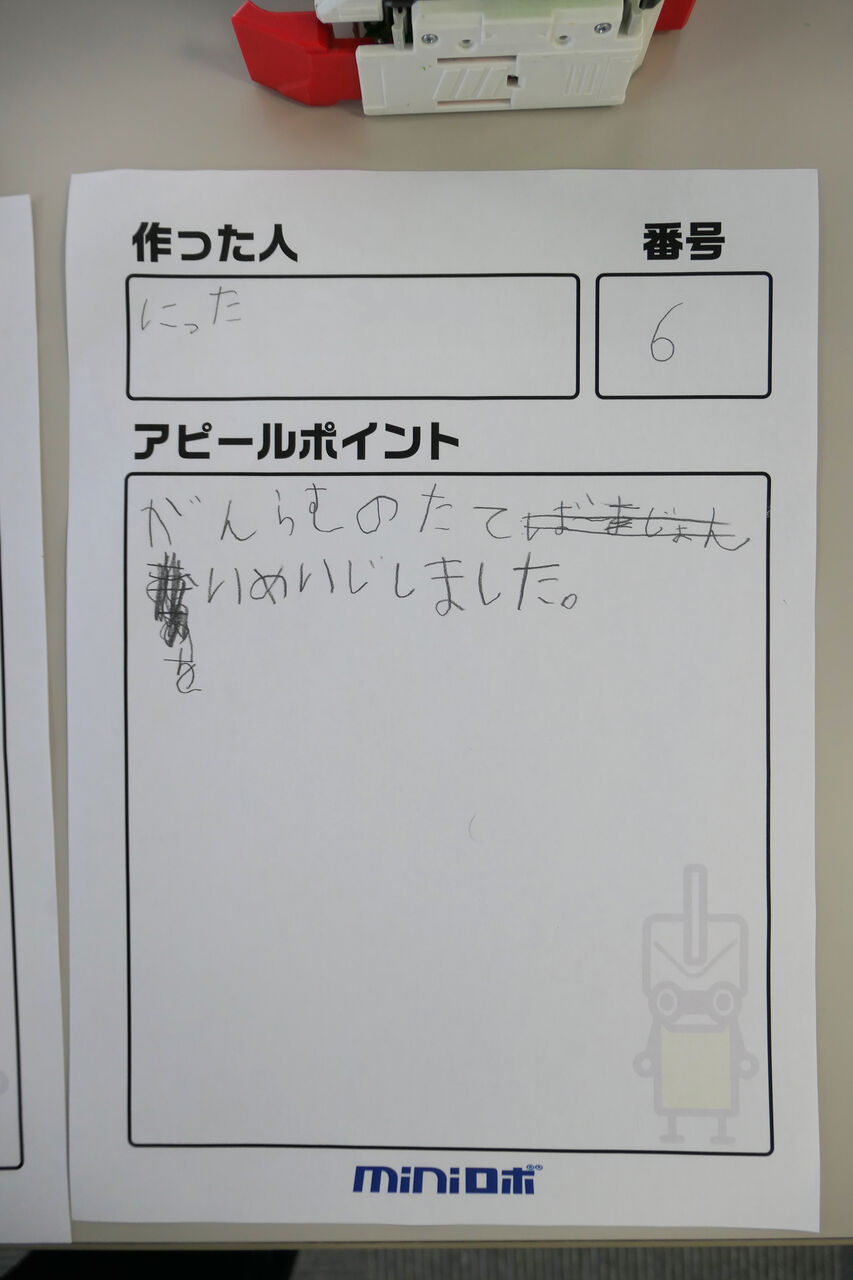 作った人
番号
にった
6
アピールポイント
がんらむのたて
いめいじしました。
を
miniロボ